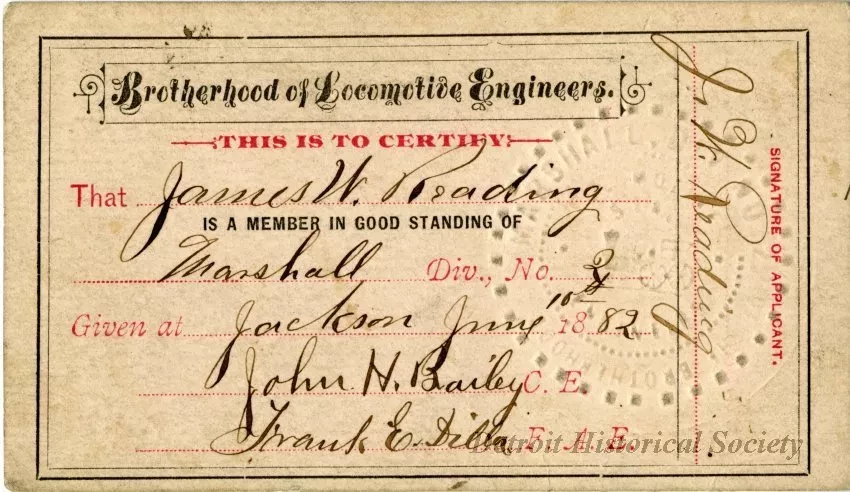 Brotherhood of Locomotive Engineers.
THIS IS TO CERTIFY:
That James W. Reading
IS A MEMBER IN GOOD STANDING OF
Marshall Div., No. 2
Given at Jackson June 10th 1882
John H. Bailey C. E.
Frank E. F. A. E.
J. W. Reading
SIGNATURE OF APPLICANT.
Detroit Historical Society